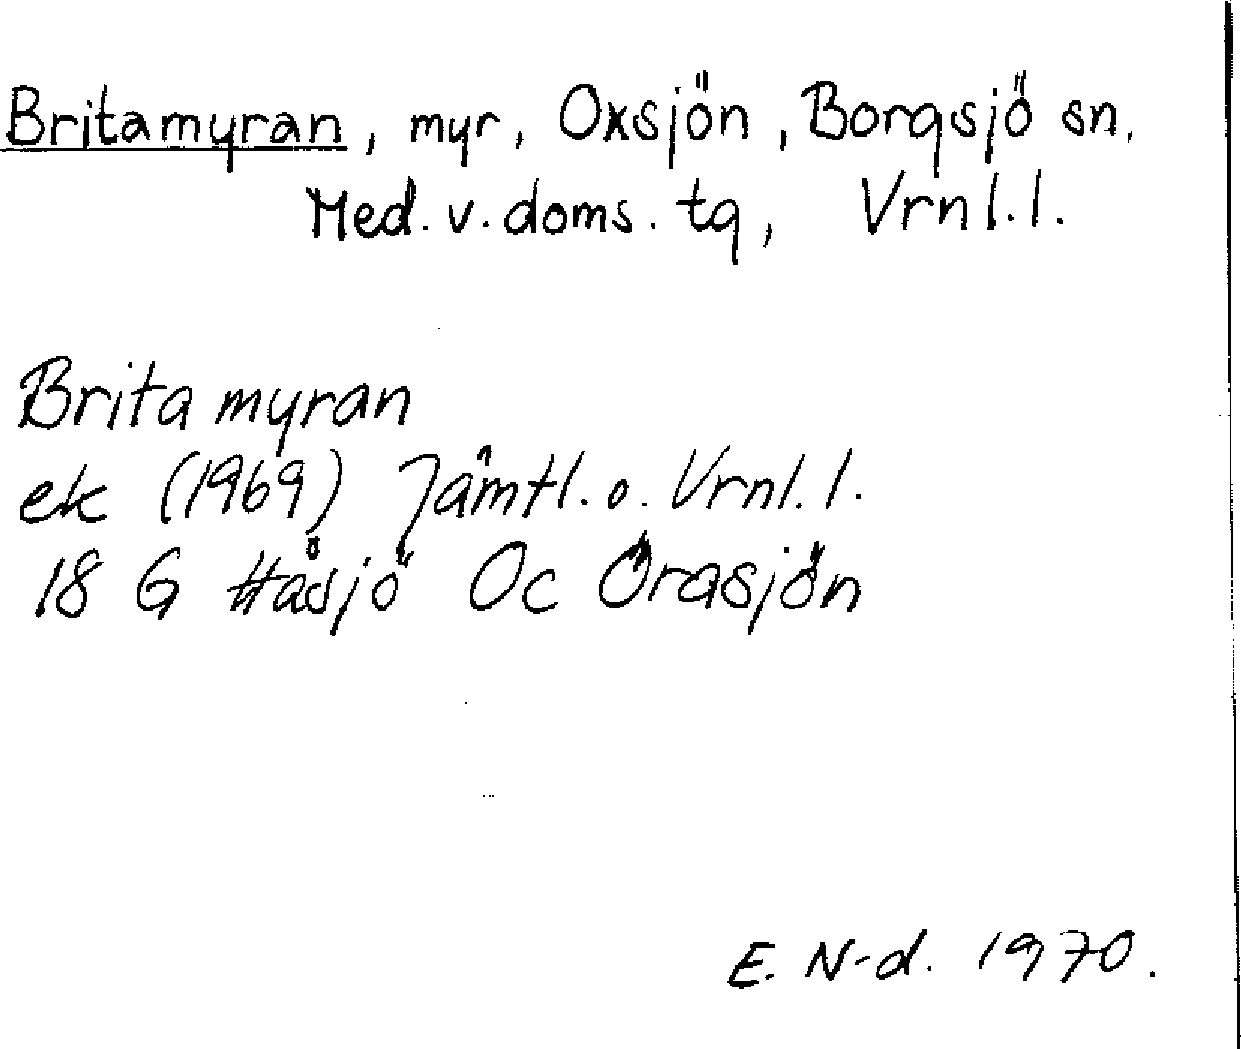 Britamyran, myr, Oxsjön, Borgsjö sn,
Med. v. doms. tg, Vrnl. l.
Britamyran
ek (1969) Jämtl. o. Vrnl. l.
18 G Håsjö Oc Örasjön
E. N-d. 1970.